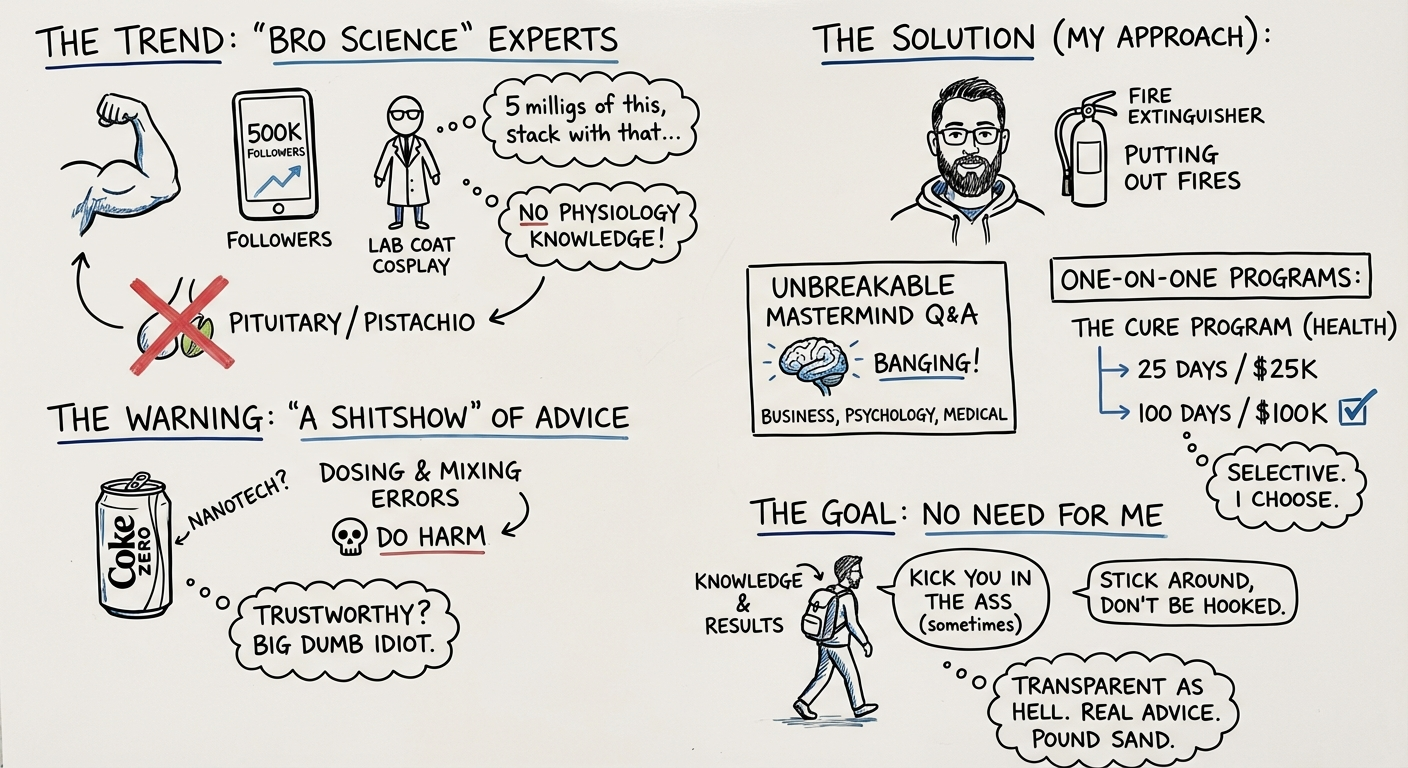 THE TREND: "BRO SCIENCE" EXPERTS
500K
FOLLOWERS
FOLLOWERS
LAB COAT
COSPLAY
5 milligs of this,
stack with that...
NO PHYSIOLOGY
KNOWLEDGE!
PITUITARY/PISTACHIO
THE WARNING: "A SHITSHOW" OF ADVICE
Coke
ZERO
NANOTECH?
DOSING & MIXING
ERRORS
DO HARM
TRUSTWORTHY?
BIG DUMB IDIOT.
THE SOLUTION (MY APPROACH):
FIRE
EXTINGUISHER
PUTTING
OUT FIRES
UNBREAKABLE
MASTERMIND Q&A
BANGING!
BUSINESS, PSYCHOLOGY, MEDICAL
ONE-ON-ONE PROGRAMS:
THE CURE PROGRAM (HEALTH)
25 DAYS / $25K
100 DAYS / $100K
SELECTIVE.
I CHOOSE.
THE GOAL: NO NEED FOR ME
KNOWLEDGE
&
RESULTS
KICK YOU IN
THE ASS
(sometimes)
STICK AROUND,
DON'T BE HOOKED.
TRANSPARENT AS
HELL. REAL ADVICE.
POUND SAND.